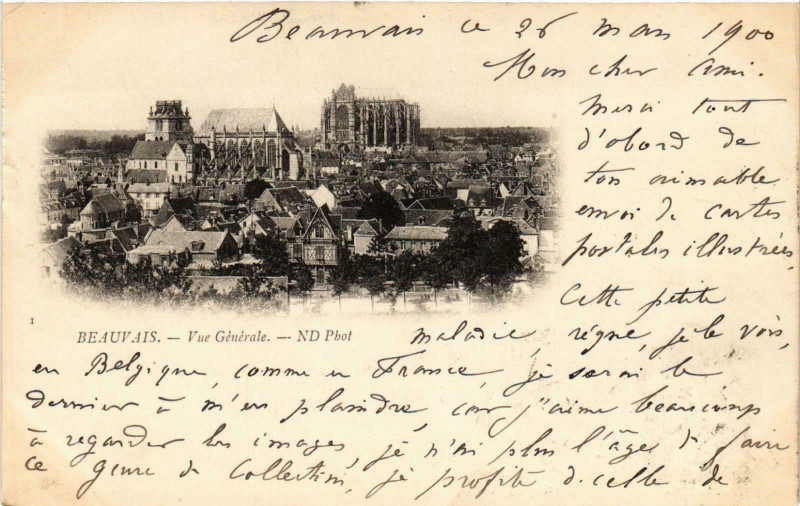 Beauvais ce 26 mars 1900
Mon cher ami.
Merci tout
d'abord de
ton aimable
envoi de cartes
postales illustrées.
Cette petite
1
BEAUVAIS. — Vue Générale. — ND Phot
maladie, règne, je le vois,
en Belgique, comme en France, je serai le
dernier à m'en plaindre, car j'aime beaucoup
à regarder les images, je n'ai plus l'âge de faire
ce genre de Collection, je profite de celle de